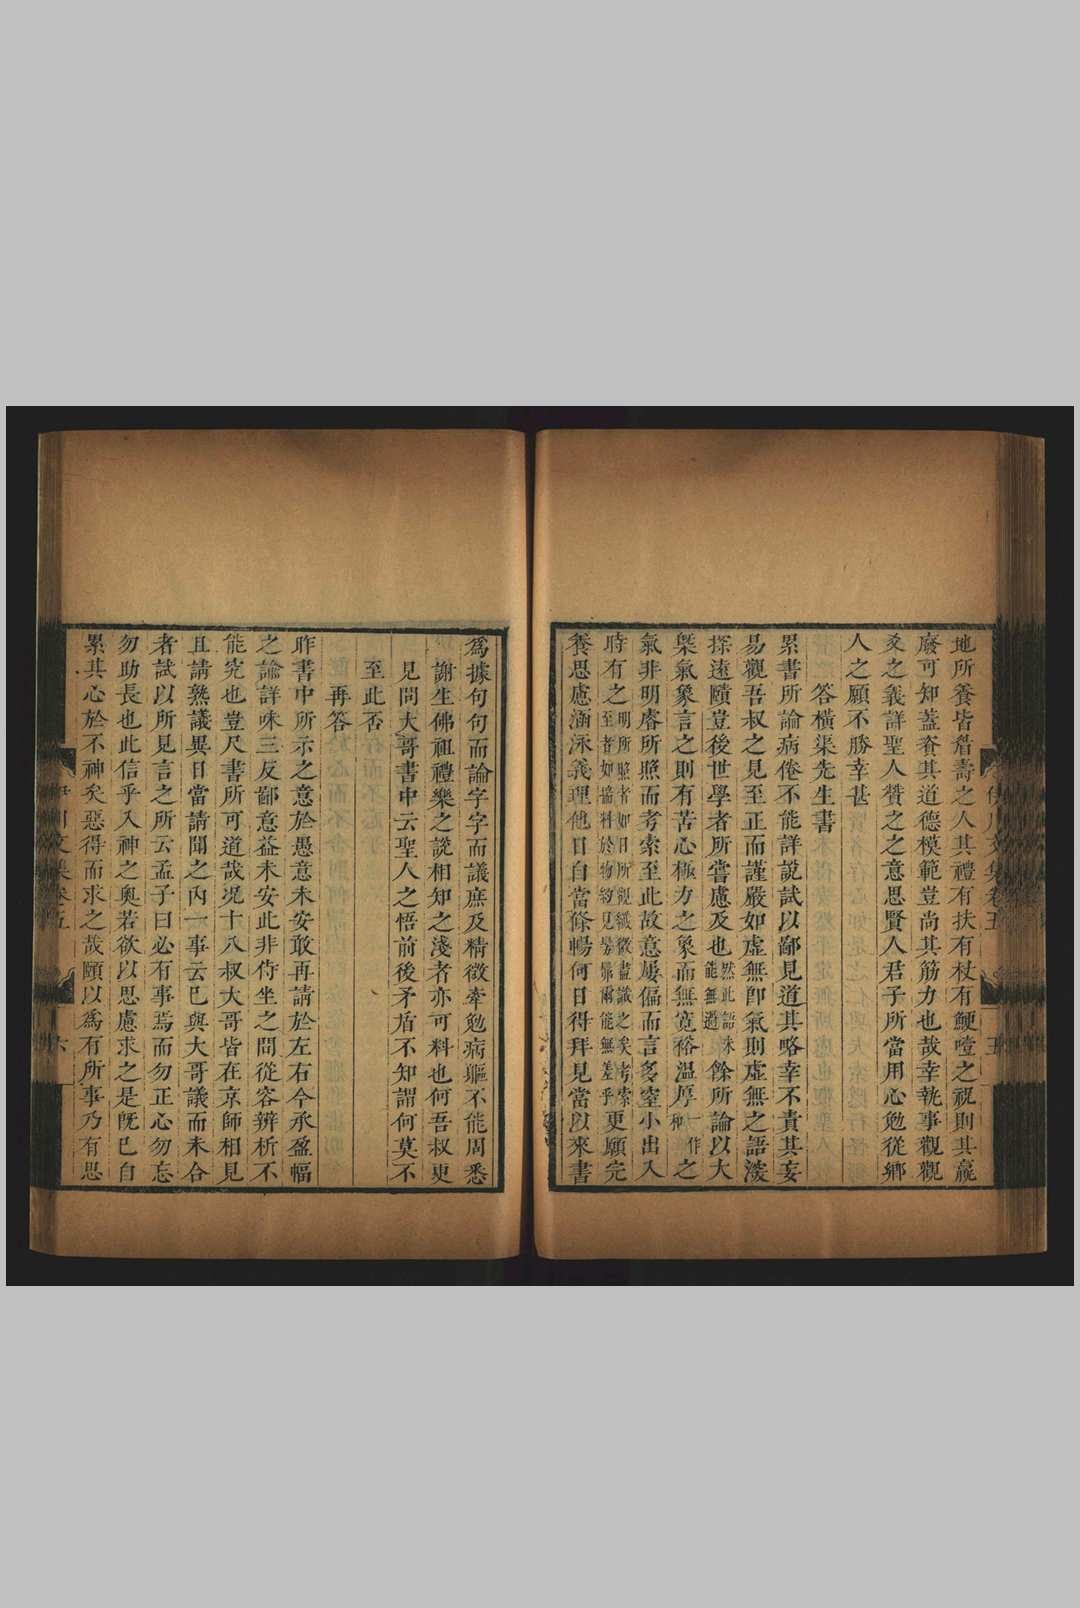 地所養皆眉壽之人其禮有扶有杖有鯁噎之祝則其羸
廢可知蓋養其道德模範豈尚其筋力也哉幸執事觀觀
爻之義詳聖人贊之之意思賢人君子所當用心勉從鄉
人之願不勝幸甚
答橫渠先生書
累書所論病倦不能詳說試以鄙見道其略幸不責其妄
易觀吾叔之見至正而謹嚴如虛無即氣則虛無之語深
探遠賾豈後世學者所嘗慮及也然此語未能無過餘所論以大
槩氣象言之則有苦心極力之象而無寬裕溫厚作和之
氣非明睿所照而考索至此故意屢偏而言多窒小出入
時有之明所照者如目所覩纖微盡識之矣考索至者如揣料於物約見髣髴爾能無差乎更願完
養思慮涵泳義理他日自當條暢何日得拜見當以來書
伊川文集卷五
五
爲據句句而論字字而議庶及精微牽勉病軀不能周悉
謝生佛祖禮樂之說相知之淺者亦可料也何吾叔更
見問大哥書中云聖人之悟前後矛盾不知謂何莫不
至此否
再答
昨書中所示之意於愚意未安敢再請於左右今承盈幅
之論詳味三反鄙意益未安此非侍坐之間從容辨析不
能究也豈尺書所可道哉況十八叔大哥皆在京師相見
且請熟議異日當請聞之內一事云已與大哥議而未合
者試以所見言之所云孟子曰必有事焉而勿正心勿忘
勿助長也此信乎入神之奧若欲以思慮求之是既已自
累其心於不神矣惡得而求之哉頤以爲有所事乃有思
伊川文集卷五
六